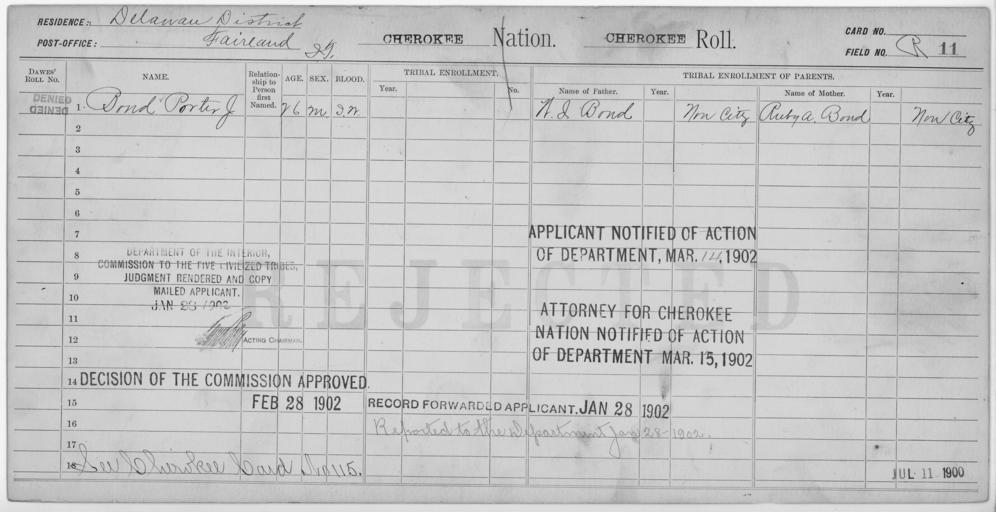 RESIDENCE: Delawau District
POST-OFFICE: Fairland I.T. CHEROKEE Nation. CHEROKEE Roll. CARD NO.
FIELD NO. R 11
DAWES' ROLL NO. NAME. Relationship to Person first Named. AGE. SEX. BLOOD. TRIBAL ENROLLMENT. TRIBAL ENROLLMENT OF PARENTS.
Year. No. Name of Father. Year. Name of Mother. Year.
DENIED
DENIED
1 Bond Porter J 26 M I.W. W. I. Bond Non Citz Ruby A. Bond Non Citz
2
3
4
5
6
7 APPLICANT NOTIFIED OF ACTION
OF DEPARTMENT, MAR. 14, 1902
8 DEPARTMENT OF THE INTERIOR,
COMMISSION TO THE FIVE CIVILIZED TRIBES,
9 JUDGMENT RENDERED AND COPY
MAILED APPLICANT.
10 JAN 28 1902
REJECTED
11 ATTORNEY FOR CHEROKEE
12 ACTING CHAIRMAN. NATION NOTIFIED OF ACTION
13 OF DEPARTMENT MAR. 15, 1902
14 DECISION OF THE COMMISSION APPROVED.
15 FEB 28 1902 RECORD FORWARDED APPLICANT. JAN 28 1902
16 Reported to the Department Jan 28-1902.
17
18 See Cherokee Card No 115. JUL 11 1900